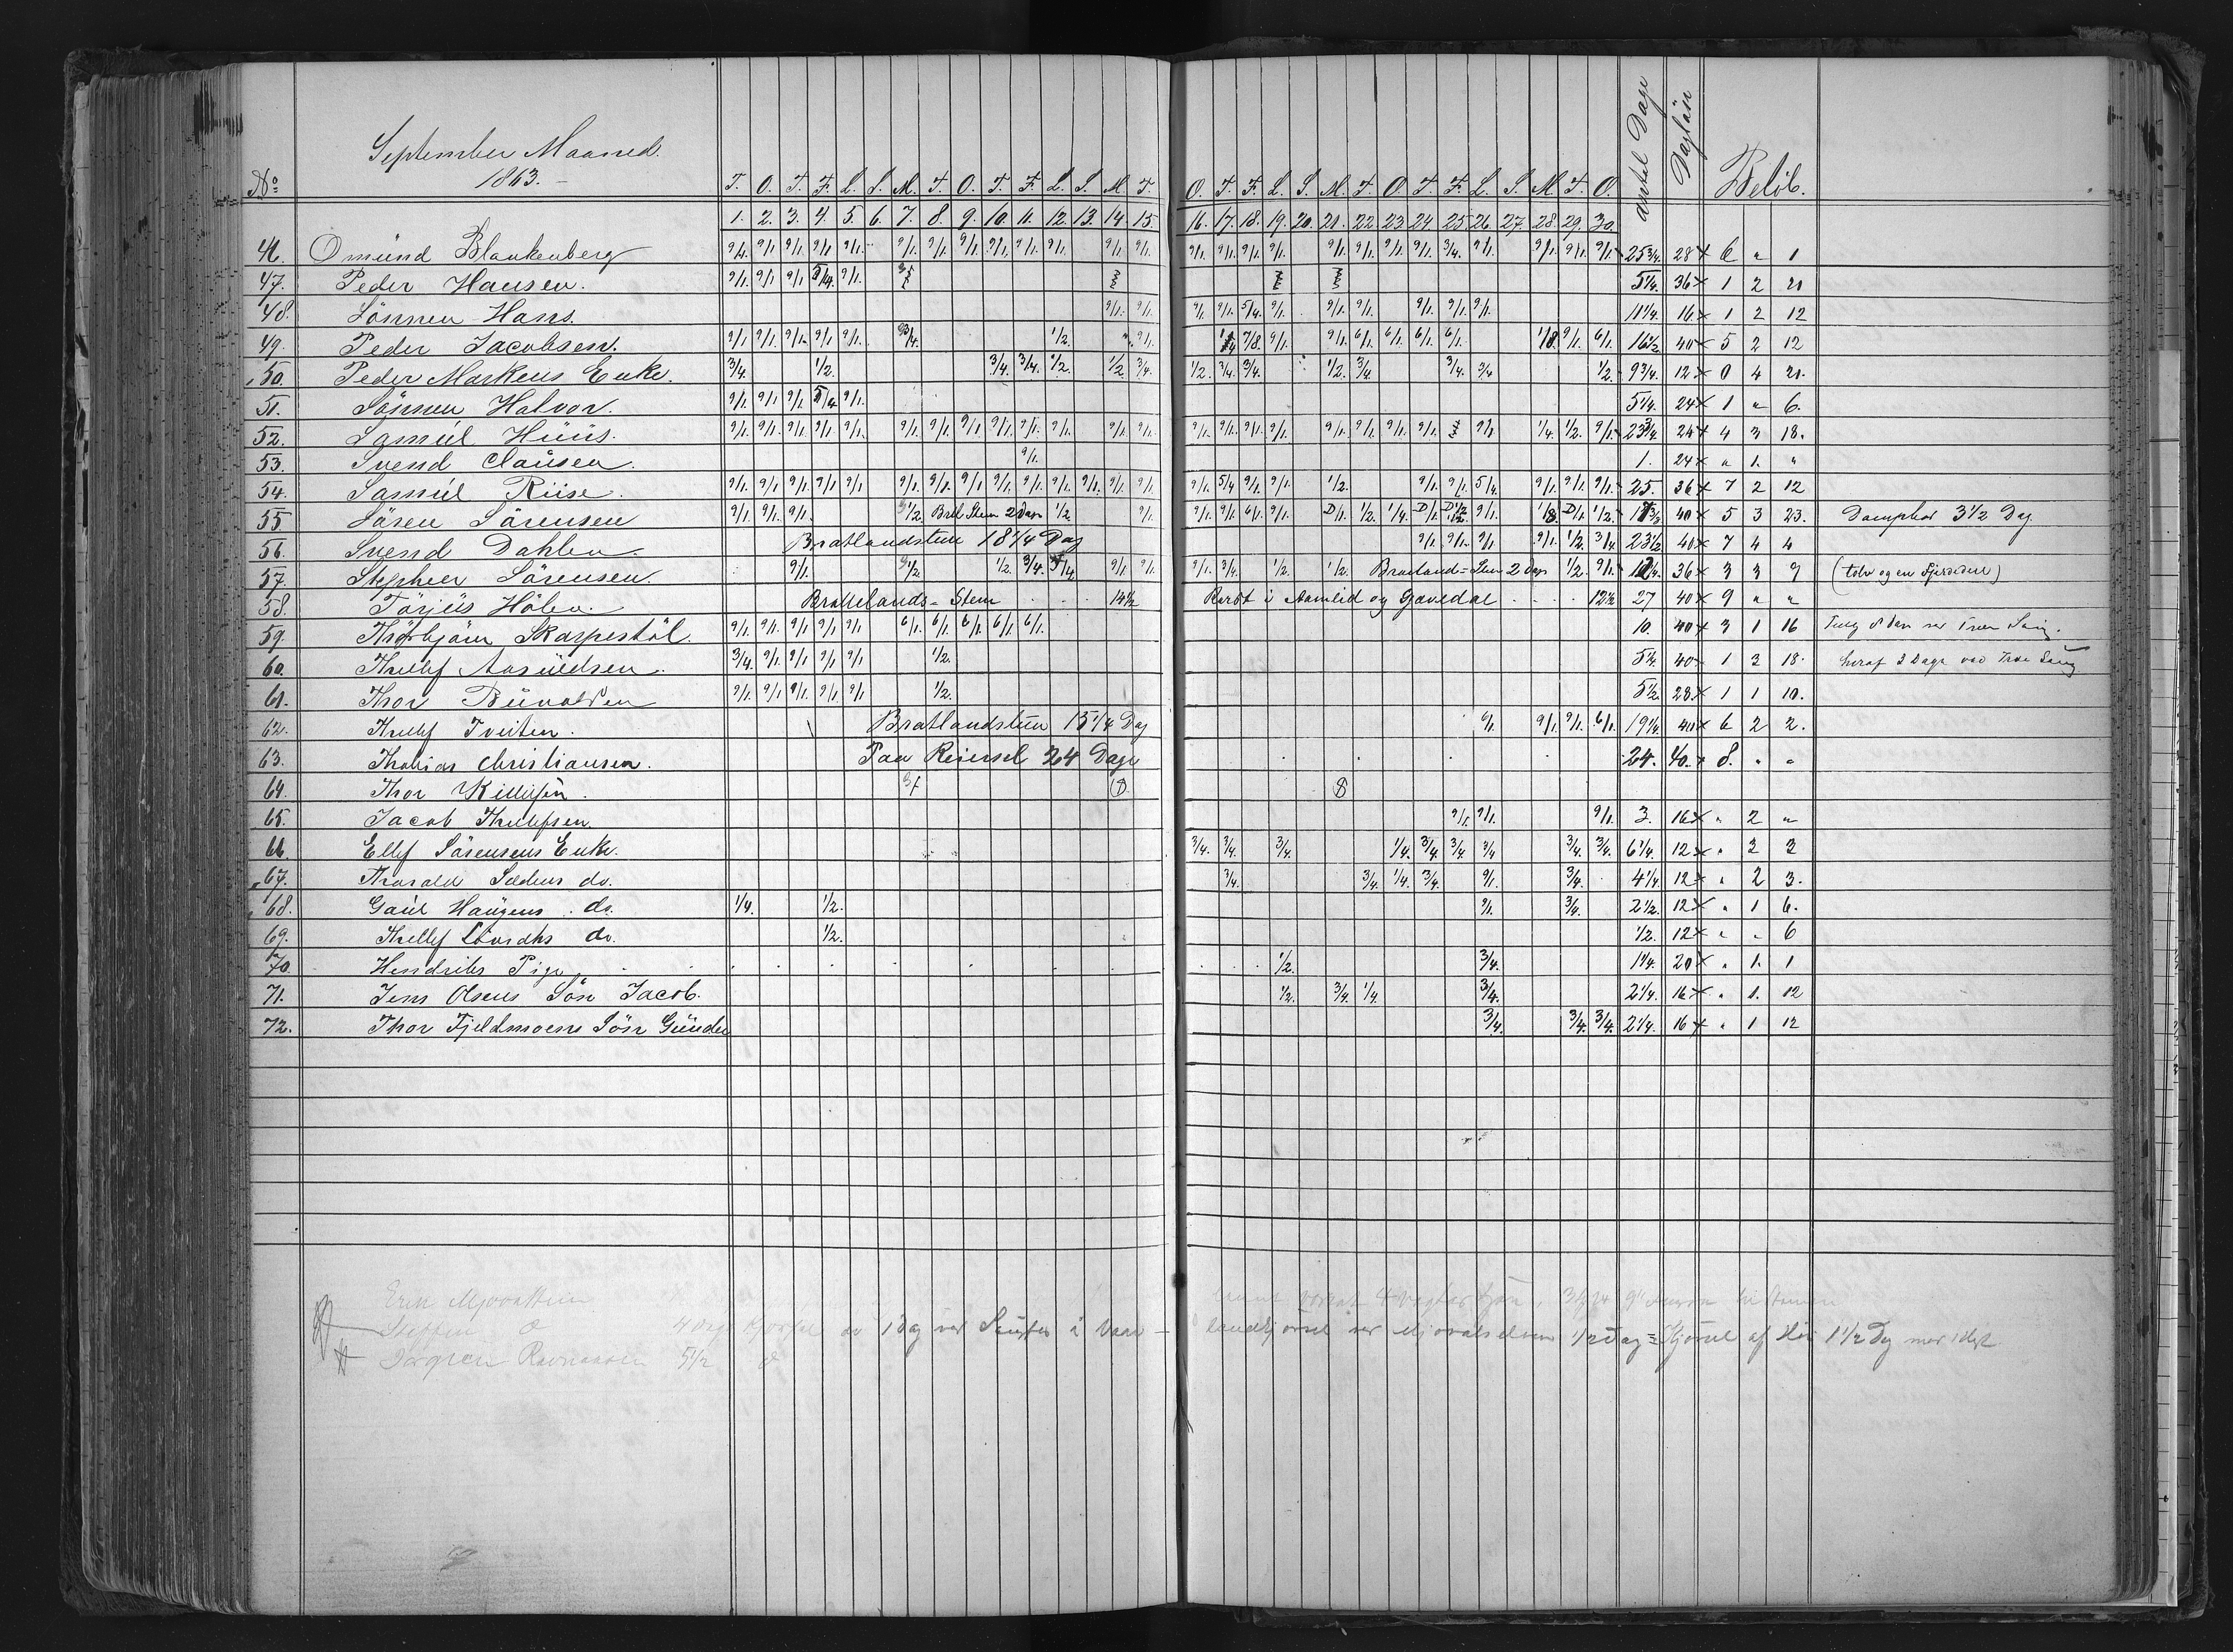 No September Maaned. T. O. T. F. L. S. M. T. O. T. F. L. S. M. T. O. T. F. L. S. M. T. O T. F. L. S. M T. O. antal Dage Dagløn Beløb.
1863.- 1. 2. 3. 4. 5. 6. 7. 8. 9. 10. 11. 12. 13. 14. 15. 16. 17. 18. 19. 20. 21. 22. 23. 24. 25. 26. 27. 28. 29. 30.
46. Omünd Blankenberg 9/1. 9/1 9/1. 9/1 9/1. 9/1. 9/1. 9/1. 9/1. 9/1. 9/1. 9/1. 9/1. 9/1. 9/1. 9/1. 9/1. 9/1. 9/1. 9/1. 9/1. 3/4. 9/1. 9/1. 9/1. 9/1. 25 3/4. 28 x 6 " 1
47. Peder Hansen. 9/1. 9/1 9/1 5/4. 9/1. 5 1/4. 36 x 1 2 21
48. Sönnen Hans. 9/1. 9/1. 9/1. 9/1. 5/4. 9/1. 9/1. 9/1. 9/1. 9/1. 9/1. 11 1/4. 16 x 1 2 12
49. Peder Jacobsen. 9/1 9/1. 9/1. 9/1 9/1. 3/4. 1/2. " 9/1. 1/4 7/8. 9/1. 9/1. 6/1. 6/1. 6/1. 6/1. 1/8. 9/1. 6/1. 16 1/2. 40 x 5 2 12
50. Peder Markens Enke. 3/4. 1/2. 3/4. 3/4. 1/2. 1/2 3/4. 1/2. 3/4. 3/4. 1/2. 3/4. 3/4. 3/4 1/2. 9 3/4. 12 x 0 4 21.
51. Sönnen Halvor. 9/1. 9/1 9/1 5/4 9/1. 5 1/4. 24 x 1 " 6.
52. Samüel Hüüs. 9/1. 9/1. 9/1. 9/1 9/1. 9/1. 9/1. 9/1 9/1. 9/1. 9/1. 9/1. 9/1. 9/1. 9/1. 9/1. 9/1. 9/1. 9/1. 9/1. 9/1. 9/1. 1/4. 1/2. 9/1. 23 3/4. 24 x 4 3 18.
53. Svend Claüsen. 9/1. 1. 24 x " 1. "
54. Samüel Riise. 9/1. 9/1 9/1. 9/1 9/1 9/1. 9/1. 9/1 9/1. 9/1. 9/1. 9/1. 9/1. 9/1. 9/1. 5/4 9/1. 9/1. 1/2. 9/1. 9/1. 5/4. 9/1. 9/1. 9/1. 25. 36 x 7 2 12
55 Sören Sörensen 9/1. 9/1. 9/1. 1/2. Bratl Stem 2 Dage 1/2. 9/1. 9/1. 9/1. 6/1. 9/1. D/1. 1/2. 1/4. D/1. 9/1. 1/8. D/1. 1/2. 40 x 5 3 23. Dampbor 3 1/2 Dag
56. Svend Dahlen. Bratlandstem 18 1/4 Dag 9/1. 9/1. 9/1 9/1. 1/2. 3/4. 23 1/2. 40 x 7 4 4
57. Stepheer Sörensen. 9/1. 1/2. 1/2. 3/4. 3/4. 9/1. 9/1. 9/1. 3/4. 1/2. 1/2. Bratland=Stem 2 Dage 1/2. 9/1. 36 x 3 3 9 (tolv og en Fjerdedel)
58. Törjüs Hölen. Brattelands=Stem 14 1/2 Reist i Aamlid og Gjøvedal 12 1/2 27 40 x 9 " "
59. Thorbjörn Skarpestöl. 9/1. 9/1. 9/1 9/1 9/1 6/1. 6/1. 6/1. 6/1. 6/1. 10. 40 x 3 1 16
60. Thellef Aasüldsen. 3/4. 9/1. 9/1 9/1 9/1 1/2. 5 1/4. 40 x 1 3 18. heraf 2 Dage ved
61. Thor 9/1. 9/1 9/1. 9/1 9/1 1/2. 5 1/2. 28 x 1 1 10.
62. Thellef Tveiten. Bratlandstem 15 1/4 Dag 6/1. 9/1. 9/1. 6/1. 19 1/4. 40 x 6 2 2.
63. Thobias Christiansen. Paa Reiersel 24 Dage 24. 40. x 8. " "
64. Thor
65. Jacob Thellefsen. 9/1. 9/1. 9/1. 3. 16 x " 2 "
66. Ellef Sörensens Enke. 3/4. 3/4. 3/4. 1/4. 3/4. 3/4. 3/4 3/4. 3/4. 6 1/4. 12 x " 3 3
67. Tharald do. 3/4. 3/4. 1/4. 3/4. 9/1. 3/4. 4 1/4. 12 x " 2 3.
68. Gaül Haügens do. 1/4. 1/2. 9/1. 3/4. 2 1/2. 12 x " 1 6.
69. Thellef do. 1/2. 1/2. 12 x " " 6
70. Hendriks Pige 1/2. 3/4. 1 1/4. 20 x " 1. 1
71. Jens Olsens Sön Jacob. 1/2. 3/4. 1/4. 3/4. 2 1/4. 16 x " 1. 12
72. Thor Fjeldmoens Sön Günder 3/4. 3/4. 3/4. 2 1/4. 16 x " 1 12
Erik
Steffen 4 Dage Kjørsel 1 Dag ved 1/2 Dag = Kjørsel af Hø 1 1/2 Dag
Jørgen 5 1/2